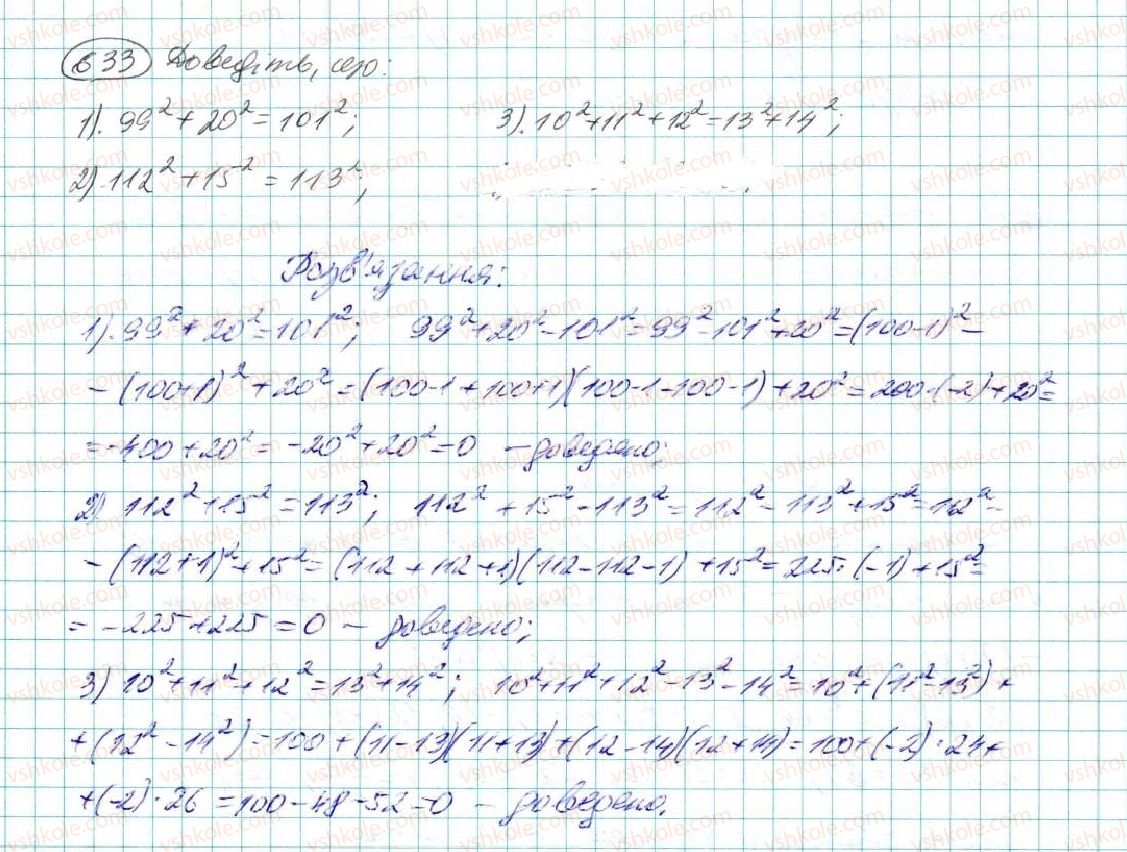 633 Доведіть, що:
1). 99² + 20² = 101²; 3). 10² + 11² + 12² = 13² + 14²;
2) 112² + 15² = 113²;
Розв'язання:
1). 99² + 20² = 101²; 99² + 20² - 101² = 99² - 101² + 20² = (100-1)² -
- (100+1)² + 20² = (100-1+100+1)(100-1-100-1) + 20² = 200·(-2) + 20² =
= -400 + 20² = -20² + 20² = 0 - доведено;
2) 112² + 15² = 113²; 112² + 15² - 113² = 112² - 113² + 15² = 112² -
- (112+1)² + 15² = (112 + 112 + 1)(112-112-1) + 15² = 225·(-1) + 15² =
= -225 + 225 = 0 - доведено;
3) 10² + 11² + 12² = 13² + 14²; 10² + 11² + 12² - 13² - 14² = 10² + (11² - 13²) +
+ (12² - 14²) = 100 + (11-13)(11+13) + (12-14)(12+14) = 100 + (-2)·24 +
+ (-2)·26 = 100 - 48 - 52 = 0 - доведено.